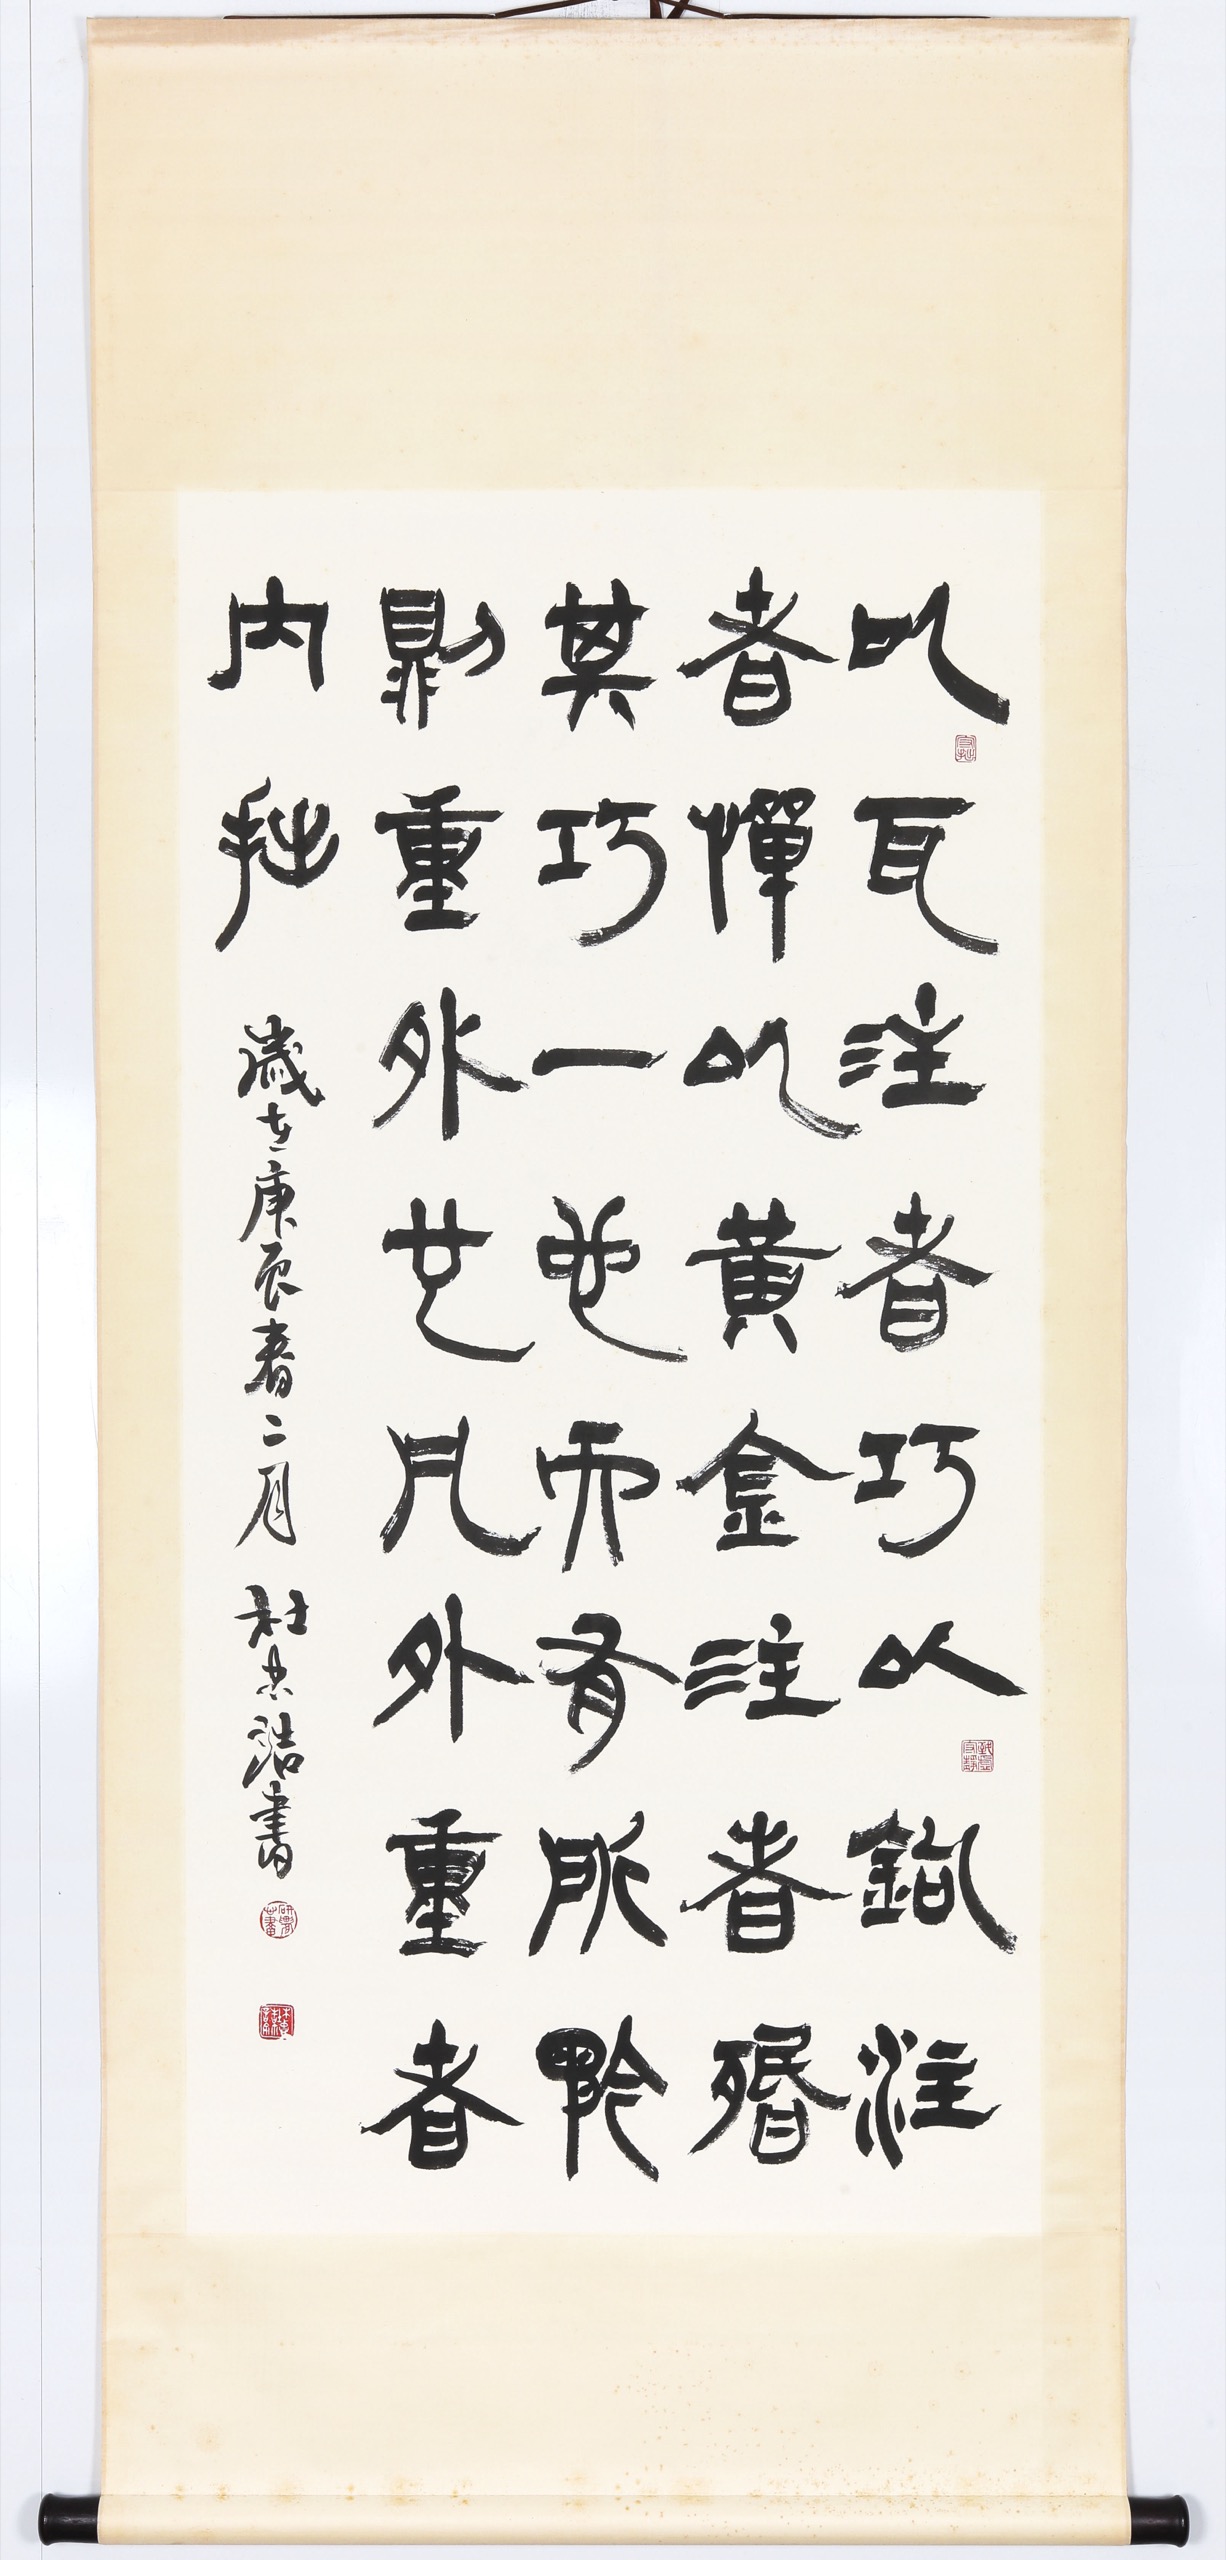 以瓦注者巧以鉤注
者憚以黃金注者殙
其巧一也而有所矜
則重外也凡外重者
內拙
歲在庚辰春二月 杜忠誥書